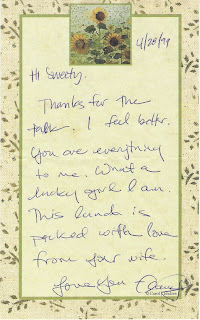 4/28/99
Hi Sweety.
Thanks for the
talk. I feel bettr.
You are everything
to me. What a
lucky girl I am.
This lunch is
packed with love
from your wife.
Love You